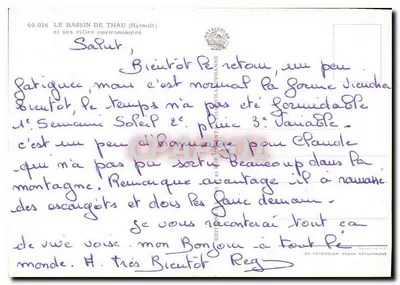 60.036 LE BASSIN DE THAU (Hérault)
et ses villes environnantes
Salut,
Bientôt le retour, un peu
fatiguée, mais c'est normal la forme viendra
bientôt, le temps n'a pas été formidable
1e Semaine Soleil 2e pluie 3e Variable.
c'est un peu dommage pour Claude
qui n'a pas pu sortir beaucoup dans la
montagne. Remarque avantage il à ramassé
des escargots et dois les faire demain.
Je vous raconterai tout ça
de vive voise. mon Bonjour à tout le
monde. A Très Bientôt